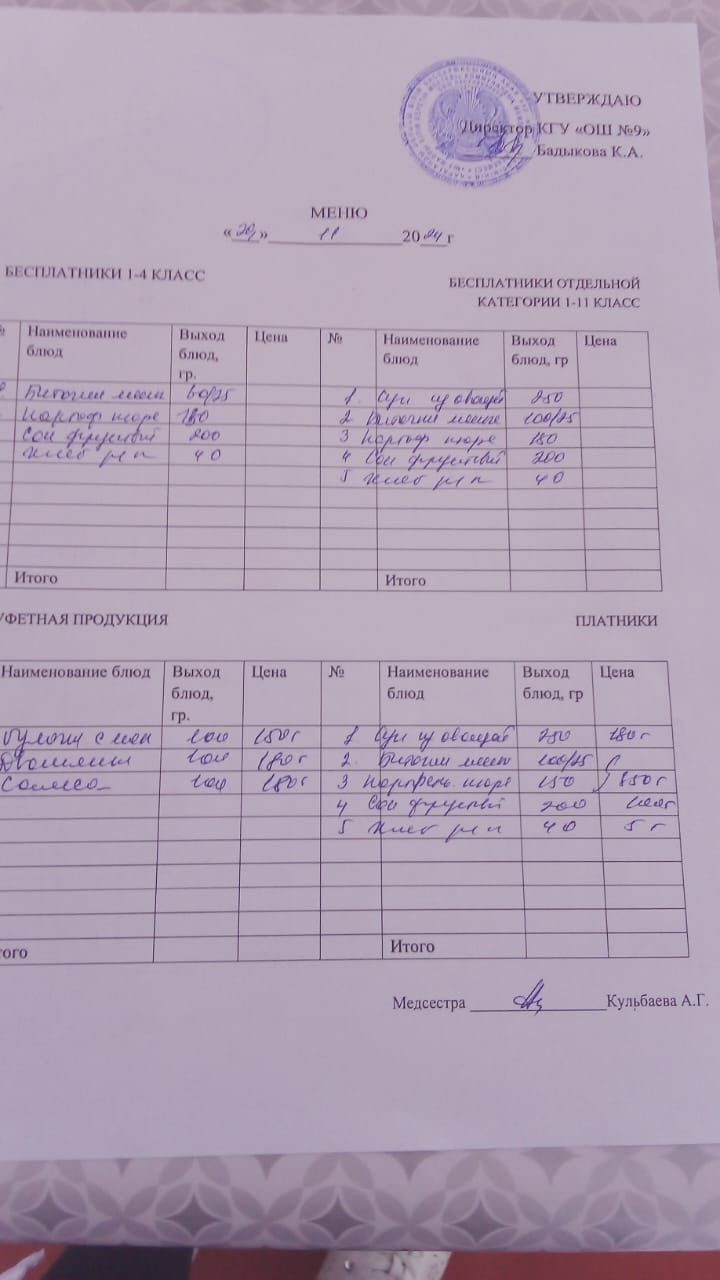 УТВЕРЖДАЮ
Директор КГУ «ОШ №9»
Бадыкова К.А.
МЕНЮ
« » 11 2024 г
БЕСПЛАТНИКИ 1-4 КЛАСС
БЕСПЛАТНИКИ ОТДЕЛЬНОЙ
КАТЕГОРИИ 1-11 КЛАСС
Наименование блюд Выход блюд, гр. Цена № Наименование блюд Выход блюд, гр Цена
Биточки мясн 60/75 1. Суп из овощей 250
Картоф пюре 180 2 Биточки 100/75
Сок фруктовый 200 3 Картоф пюре 180
Хлеб рж п 40 4 Сок фруктовый 200
5 Хлеб рж п 40
Итого Итого
УФЕТНАЯ ПРОДУКЦИЯ
ПЛАТНИКИ
Наименование блюд Выход блюд, гр. Цена № Наименование блюд Выход блюд, гр Цена
100 150 г 1 Суп из овощей 250 180 г
100 180 г 2. Биточки мясн 100/75
Самса 100 180 г 3 Картофель. пюре 150 850 г
4 Сок фруктовый 200 100 г
5 Хлеб рж п 40 5 г
того Итого
Медсестра Кульбаева А.Г.